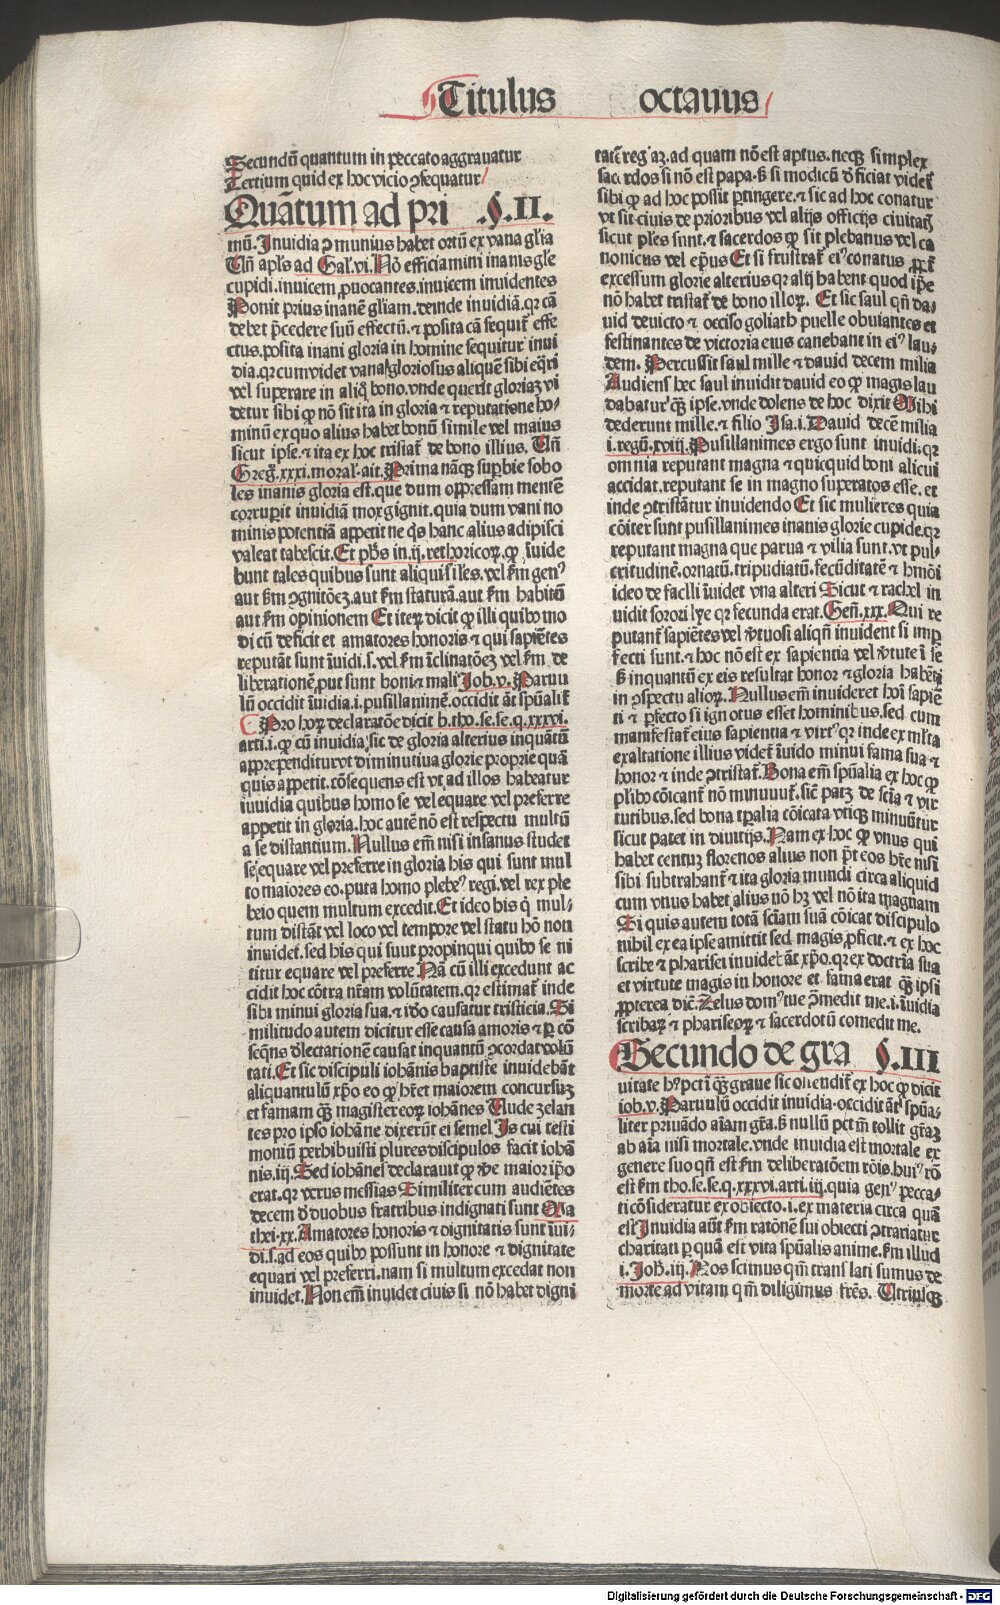 Titulus octauus
Secundū quantum in peccato aggrauatur
Tertium quid ex hoc vicio ↄsequatur
Quātum ad pri .§.II.
mū. Inuidia ↄmuniꝰ habet ortū ex vana gl̄ia
Uñ apl̄s ad Gal̓.vi. Nō efficiamini inanis gl̄e
cupidi.inuicem ꝓuocantes.inuicem inuidentes
Ponit prius inanē gl̄iam.deinde inuidiā.qꝛ cā
debet p̄cedere suū effectū.⁊ posita cā sequit̄ effe
ctus.posita inani gloria in homine sequitur inui
dia.qꝛ cum videt vanaꝫ gloriosus aliquē sibi eq̄ri
vel superare in aliq̊ bono.vnde querit gloriaꝫ vi
detur sibi ꝙ nō sit ita in gloria ⁊ reputatione ho-
minū ex quo alius habet bonū simile vel maius
sicut ipse.⁊ ita ex hoc tristat̄ de bono illius. Uñ
Greg̓.xxxi.moral̓.ait. Prima nāqꝫ sup̱bie sobo
les inanis gloria est.que dum oppressam mentē
corrup̱it inuidiā mox gignit.quia dum vani no
minis potentiā appetit ne q̊s hanc alius adipisci
valeat tabescit. Et ph̄s in.ij.rethoricoꝝ.ꝙ īuide
bunt tales quibus sunt aliqui siles.vel ẜm genꝰ
aut ẜm ↄgnitōeꝫ.aut ẜm staturā.aut ẜm habitū
aut ẜm opinionem Et iteꝝ dicit ꝙ illi quibꝰ mo
dicū deficit et amatores honoris ⁊ qui sapiētes
reputāt̄ sunt īuidi.s.vel ẜm īclinatōeꝫ vel ẜm de
liberationē.put sunt boni ⁊ mali Job.v. Paruu
lū occidit īuidia.i.pusillanimē.occidit āt sp̄ualit̄
Pro hoꝝ declaratōe dicit b.tho.se.se.q.xxxvi.
arti.i.ꝙ cū inuidia sic de gloria alterius inquātū
apprehenditur vt diminutiua glorie proprie quā
quis appetit.cōsequens est vt ad illos habeatur
inuidia quibus homo se vel equare vel preferre
appetit in gloria.hoc autē nō est respectu multū
a se distantium. Nullus em̄ nisi insanus studet
se equare vel preferre in gloria his qui sunt mul
to maiores eo.puta homo plebeꝰ regi.vel rex ple
beio quem multum excedit. Et ideo his q̇ mul-
tum distāt vel loco vel tempore vel statu hō non
inuidet.sed his qui sunt propinqui quibꝰ se ni
titur equare vel preferre Nā cū illi excedunt ac
cidit hoc cōtra nr̄am volūtatem.qꝛ estimat̄ inde
sibi minui gloria sua.⁊ iō causatur tristicia. Si
militudo autem dicitur esse causa amoris ⁊ p̱ cō
seq̄ns delectationē causat inquantū ↄcordat volū
tati. Et sic discipuli iohānis baptiste inuidebāt
aliquantulū xp̄o eo ꝙ hr̄et maiorem concursuꝫ
et famam qꝫ magister eoꝝ iohānes Unde zelan
tes pro ipso iohāne dixerūt ei semel Is cui testi
moniū perhibuisti plures discipulos facit iohā
nis.iij. Sed iohānes declarauit ꝙ vere maior ip̄o
erat.qꝛ verus messias Similiter cum audiētes
decem de duobus fratribus indignati sunt Ma
thei.xx. Amatores honoris ⁊ dignitatis sunt īui-
di.s.ad eos quibꝰ possunt in honore ⁊ dignitate
equari vel preferri.nam si multum excedat non
inuidet. Non em̄ inuidet ciuis si nō habet digni
tatē regiaꝫ.ad quam nō est aptus.neqꝫ simplex
sacerdos si nō est papa.ẜ si modicū deficiat videt̄
sibi ꝙ ad hoc possit p̱tingere.⁊ sic ad hoc conatur
vt sit ciuis de prioribus vel alijs officijs ciuitatꝭ
sicut pl̄es sunt.⁊ sacerdos ꝙ sit plebanus vel ca
nonicus vel ep̄us Et si frustrat̄ eiꝰ conatus ꝓpt̄
excessum glorie alterius qꝛ alij habent quod ip̄e
nō habet tristat̄ de bono illoꝝ. Et sic saul qn̄ da-
uid deuicto ⁊ occiso goliath puelle obuiantes et
festinantes de victoria eius canebant in eiꝰ lau-
dem. Percussit saul mille ⁊ dauid decem milia
Audiens hec saul inuidit dauid eo ꝙ magis lau
dabatur qꝫ ipse.vnde dolens de hoc dixit Mihi
dederunt mille.⁊ filio Isa.i.Dauid decē milia
i.regū.xviij. Pusillanimes ergo sunt inuidi.qꝛ
omnia reputant magna ⁊ quicquid boni alicui
accidat.reputant se in magno superatos esse.et
inde ↄtristātur inuidendo Et sic mulieres quia
cōiter sunt pusillanimes inanis glorie cupide.qꝛ
reputant magna que parua ⁊ vilia sunt.vt pul-
critudinē.ornatū.tripudiatū.fecūditatē ⁊ hmōi
ideo de facili īuidet vna alteri Sicut ⁊ rachel in
uidit sorori lye qꝛ fecunda erat. Gen̄.xxx. Qui re
putant̄ sapiētes vel v̓tuosi aliqn̄ inuident si imp̱
fecti sunt.⁊ hoc nō est ex sapientia vel v̓tute ī se
ẜ inquantū ex eis resultat honor ⁊ gloria habēti
in ↄspectu alioꝝ. Nullus em̄ inuideret hoī sapiē
ti ⁊ p̱fecto si ignotus esset hominibus.sed cum
manifestat̄ eius sapientia ⁊ virtꝰ qꝛ inde ex ml̄ta
exaltatione illius videt̄ īuido minui fama sua ⁊
honor ⁊ inde ↄtristat̄. Bona em̄ sp̄ualia ex hoc ꝙ
pl̄ibꝰ cōicant̄ nō minuunt̄.sic patꝫ de sciā ⁊ vir
tutibus.sed bona tp̱alia cōicata vtiqꝫ minuūtur
sicut patet in diuitijs. Nam ex hoc ꝙ vnus qui
habet centuꝫ florenos alius non p̄t eos hr̄e nisi
sibi subtrahant̄ ⁊ ita gloria mundi circa aliquid
cum vnus habet alius nō hꝫ vel nō ita magnam
Si quis autem totā sciam suā cōicat discipulo
nihil ex ea ipse amittit sed magis ꝓficit.⁊ ex hoc
scribe ⁊ pharisei inuidebāt xp̄o.qꝛ ex doctrīa sua
et virtute magis in honore et fama erat qꝫ ipsi
ꝓpterea dic̄. Zelus domꝰ tue ↄmedit me.i.īuidia
scribaꝝ ⁊ phariseoꝝ ⁊ sacerdotū comedit me.
Secundo de gra §.III
uitate hꝰ pctī qꝫ graue sic ostendit̄ ex hoc ꝙ dicit̄
iob.v. Paruulū occidit inuidia.occidit āt sp̄ua-
liter priuādo aīam gr̄a.ẜ nullū pctm̄ tollit gr̄aꝫ
ab aīa nisi mortale.vnde inuidia est mortale ex
genere suo qn̄ est ẜm deliberatōem rōis.huiꝰ rō
est ẜm tho.se.se.q.xxxvi.arti.iij.quia genꝰ pecca-
ti cōsideratur ex obiecto.i.ex materia circa quā
est Inuidia aūt ẜm ratōnē sui obiecti ↄtrariatur
charitati p̱ quā est vita sp̄ualis anime.ẜm illud
i.Joh.iij. Nos scimus qm̄ translati sumus de
morte ad vitam qm̄ diligimus fr̄es. Utriusqꝫ
Digitalisierung gefördert durch die Deutsche Forschungsgemeinschaft - DFG